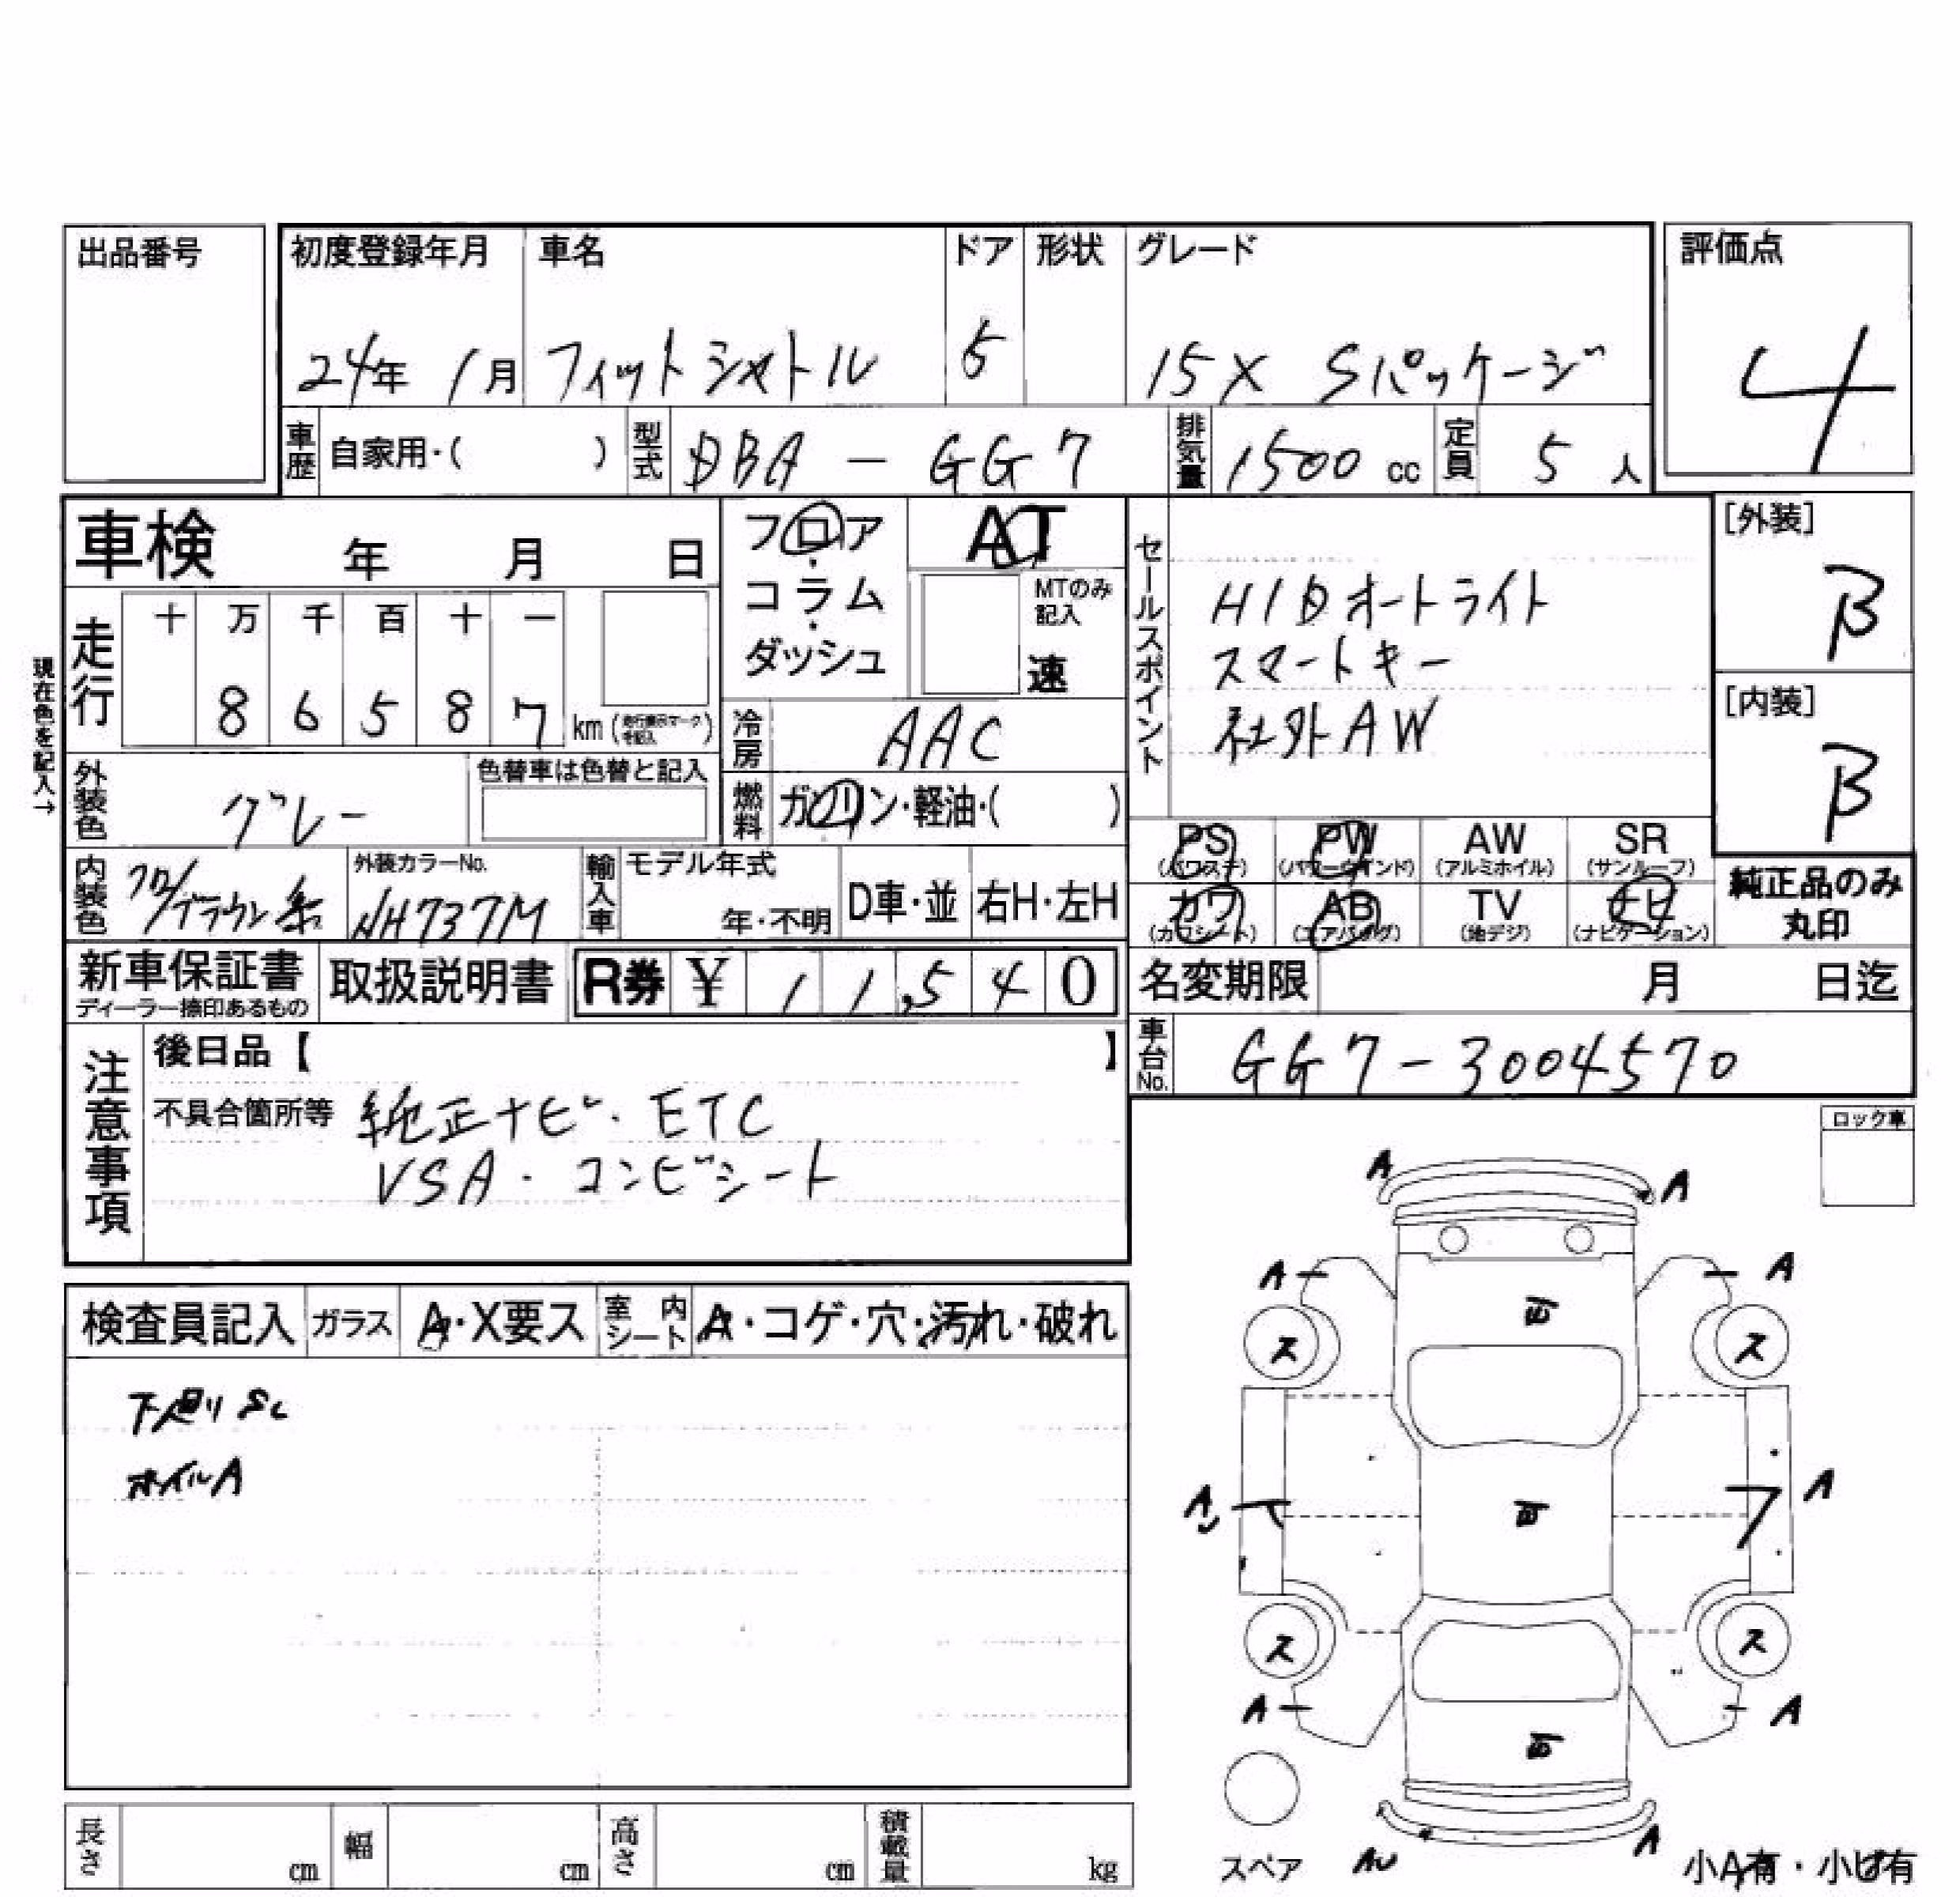 出品番号
初度登録年月 車名 ドア 形状 グレード 評価点
24年 1月 フィットシャトル 5 15X Sパッケージ 4
車歴 自家用・( ) 型式 DBA - GG7 排気量 1500 cc 定員 5 人
車検 年 月 日
フロア・コラム・ダッシュ
AT
MTのみ記入
速
セールスポイント
HIDオートライト
スマートキー
社外AW
[外装]
B
[内装]
B
現在色を記入→
走行 十 万 千 百 十 一
8 6 5 8 7 km (走行表示マークを記入)
冷房 AAC
外装色 グレー 色替車は色替と記入
燃料 ガソリン・軽油・( )
PS (パワステ) PW (パワーウインド) AW (アルミホイル) SR (サンルーフ)
カワ (カワシート) AB (エアバッグ) TV (地デジ) ナビ (ナビゲーション)
純正品のみ
丸印
内装色 クロ/ブラウン系 外装カラーNo. NH737M 輸入車 モデル年式 年・不明 D車・並 右H・左H
新車保証書 ディーラー捺印あるもの 取扱説明書 R券 ¥ 1 1,5 4 0
名変期限 月 日迄
車台No. GG7-3004570
注意事項
後日品【 】
不具合箇所等 純正ナビ・ETC
VSA・コンビシート
ロック車
検査員記入 ガラス A・X要ス 室内シート A・コゲ・穴・汚れ・破れ
下廻りSC
ホイルA
A A
A A
ス ス
A A
ス ス
A A
スペア AU A 小A有・小ピ有
長さ cm 幅 cm 高さ cm 積載量 kg